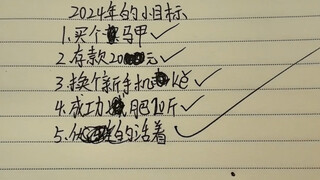 2024年的小目标
1.买个马甲
2.存款20元
3.换个新手机
4.成功肥10斤
5.的活着